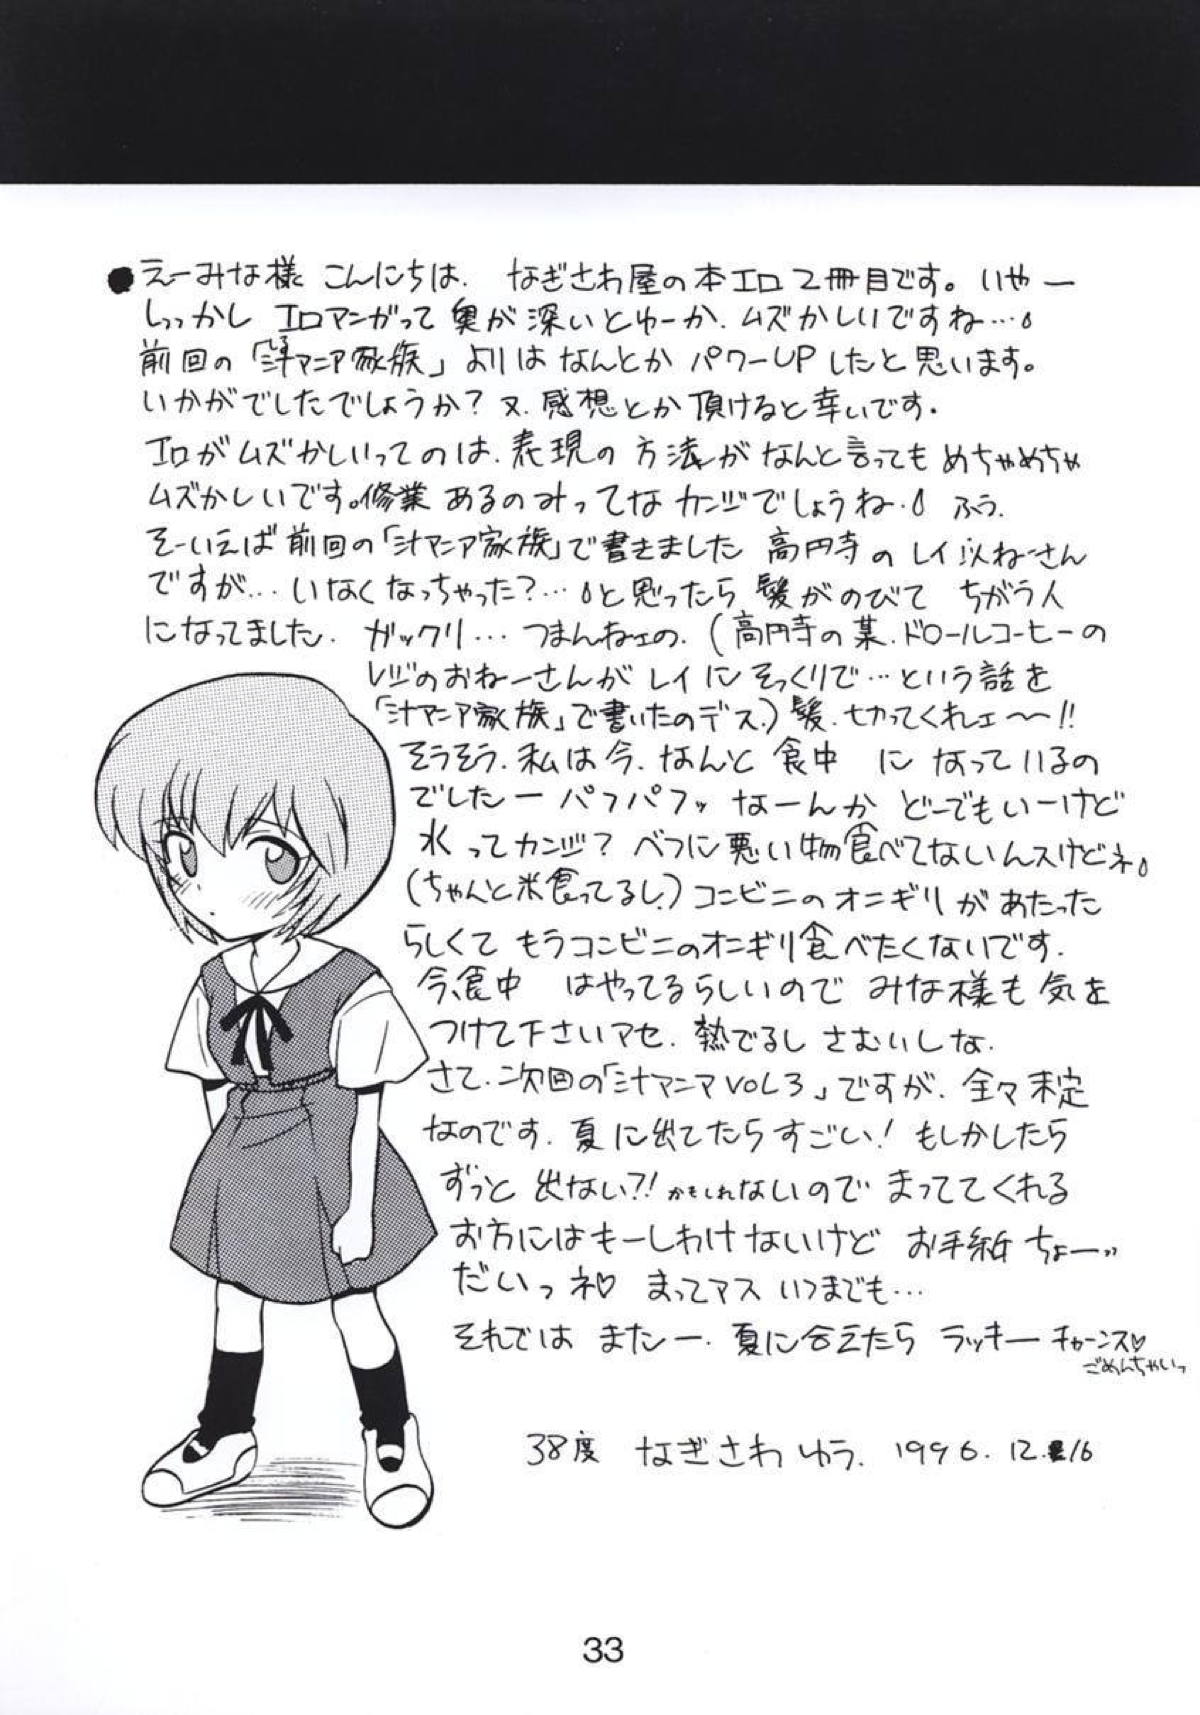 ●えーみな様 こんにちは、 なぎさわ屋の本エロ2冊目です。いやー
しっかし エロマンガって 奥が 深いとゆーか、ムズかしいですね…
前回の「汁マニア家族」よりは なんとか パワーUPしたと思います。
いかがでしたでしょうか？又、感想とか頂けると幸いです。
エロがムズかしいってのは、表現の方法がなんと言っても めちゃめちゃ
ムズかしいです。修業 あるのみってな カンジでしょうね。ふう、
そーいえば 前回の「汁マニア家族」で書きました 高円寺のレイ似ねーさん
ですが… いなくなっちゃった？…と思ったら 髪がのびて ちがう人
になってました。ガックリ… つまんねェの。(高円寺の某、ドロールコーヒーの
レジのおねーさんがレイに そっくりで…という話を
「汁マニア家族」で書いたのデス。) 髪、切ってくれェ〜!!
そうそう、私は今、なんと 食中 になっているの
でしたー パフパフッ なーんか どーでもいーけど
水ってカンジ？ べつに悪い物食べてないんスけどネ。
(ちゃんと米食ってるし、)コンビニのオニギリが あたった
らしくて もうコンビニのオニギリ食べたくないです。
今、食中 はやってるらしいので みな様も 気を
つけて下さいマセ、熱でるし さむいしな、
さて、次回の「汁マニアVOL3」ですが、全々未定
なのです、夏に出てたらすごい！もしかしたら
ずっと 出ない?! かもしれないので まっててくれる
お方にはもーしわけないけど お手紙 ちょーッ
だいっネ♡ まってマス いつまでも…
それでは またー、夏に会えたら ラッキー チャーンス♡
ごめんちゃいっ
38度 なぎさわ ゆう、1996.12.16
33